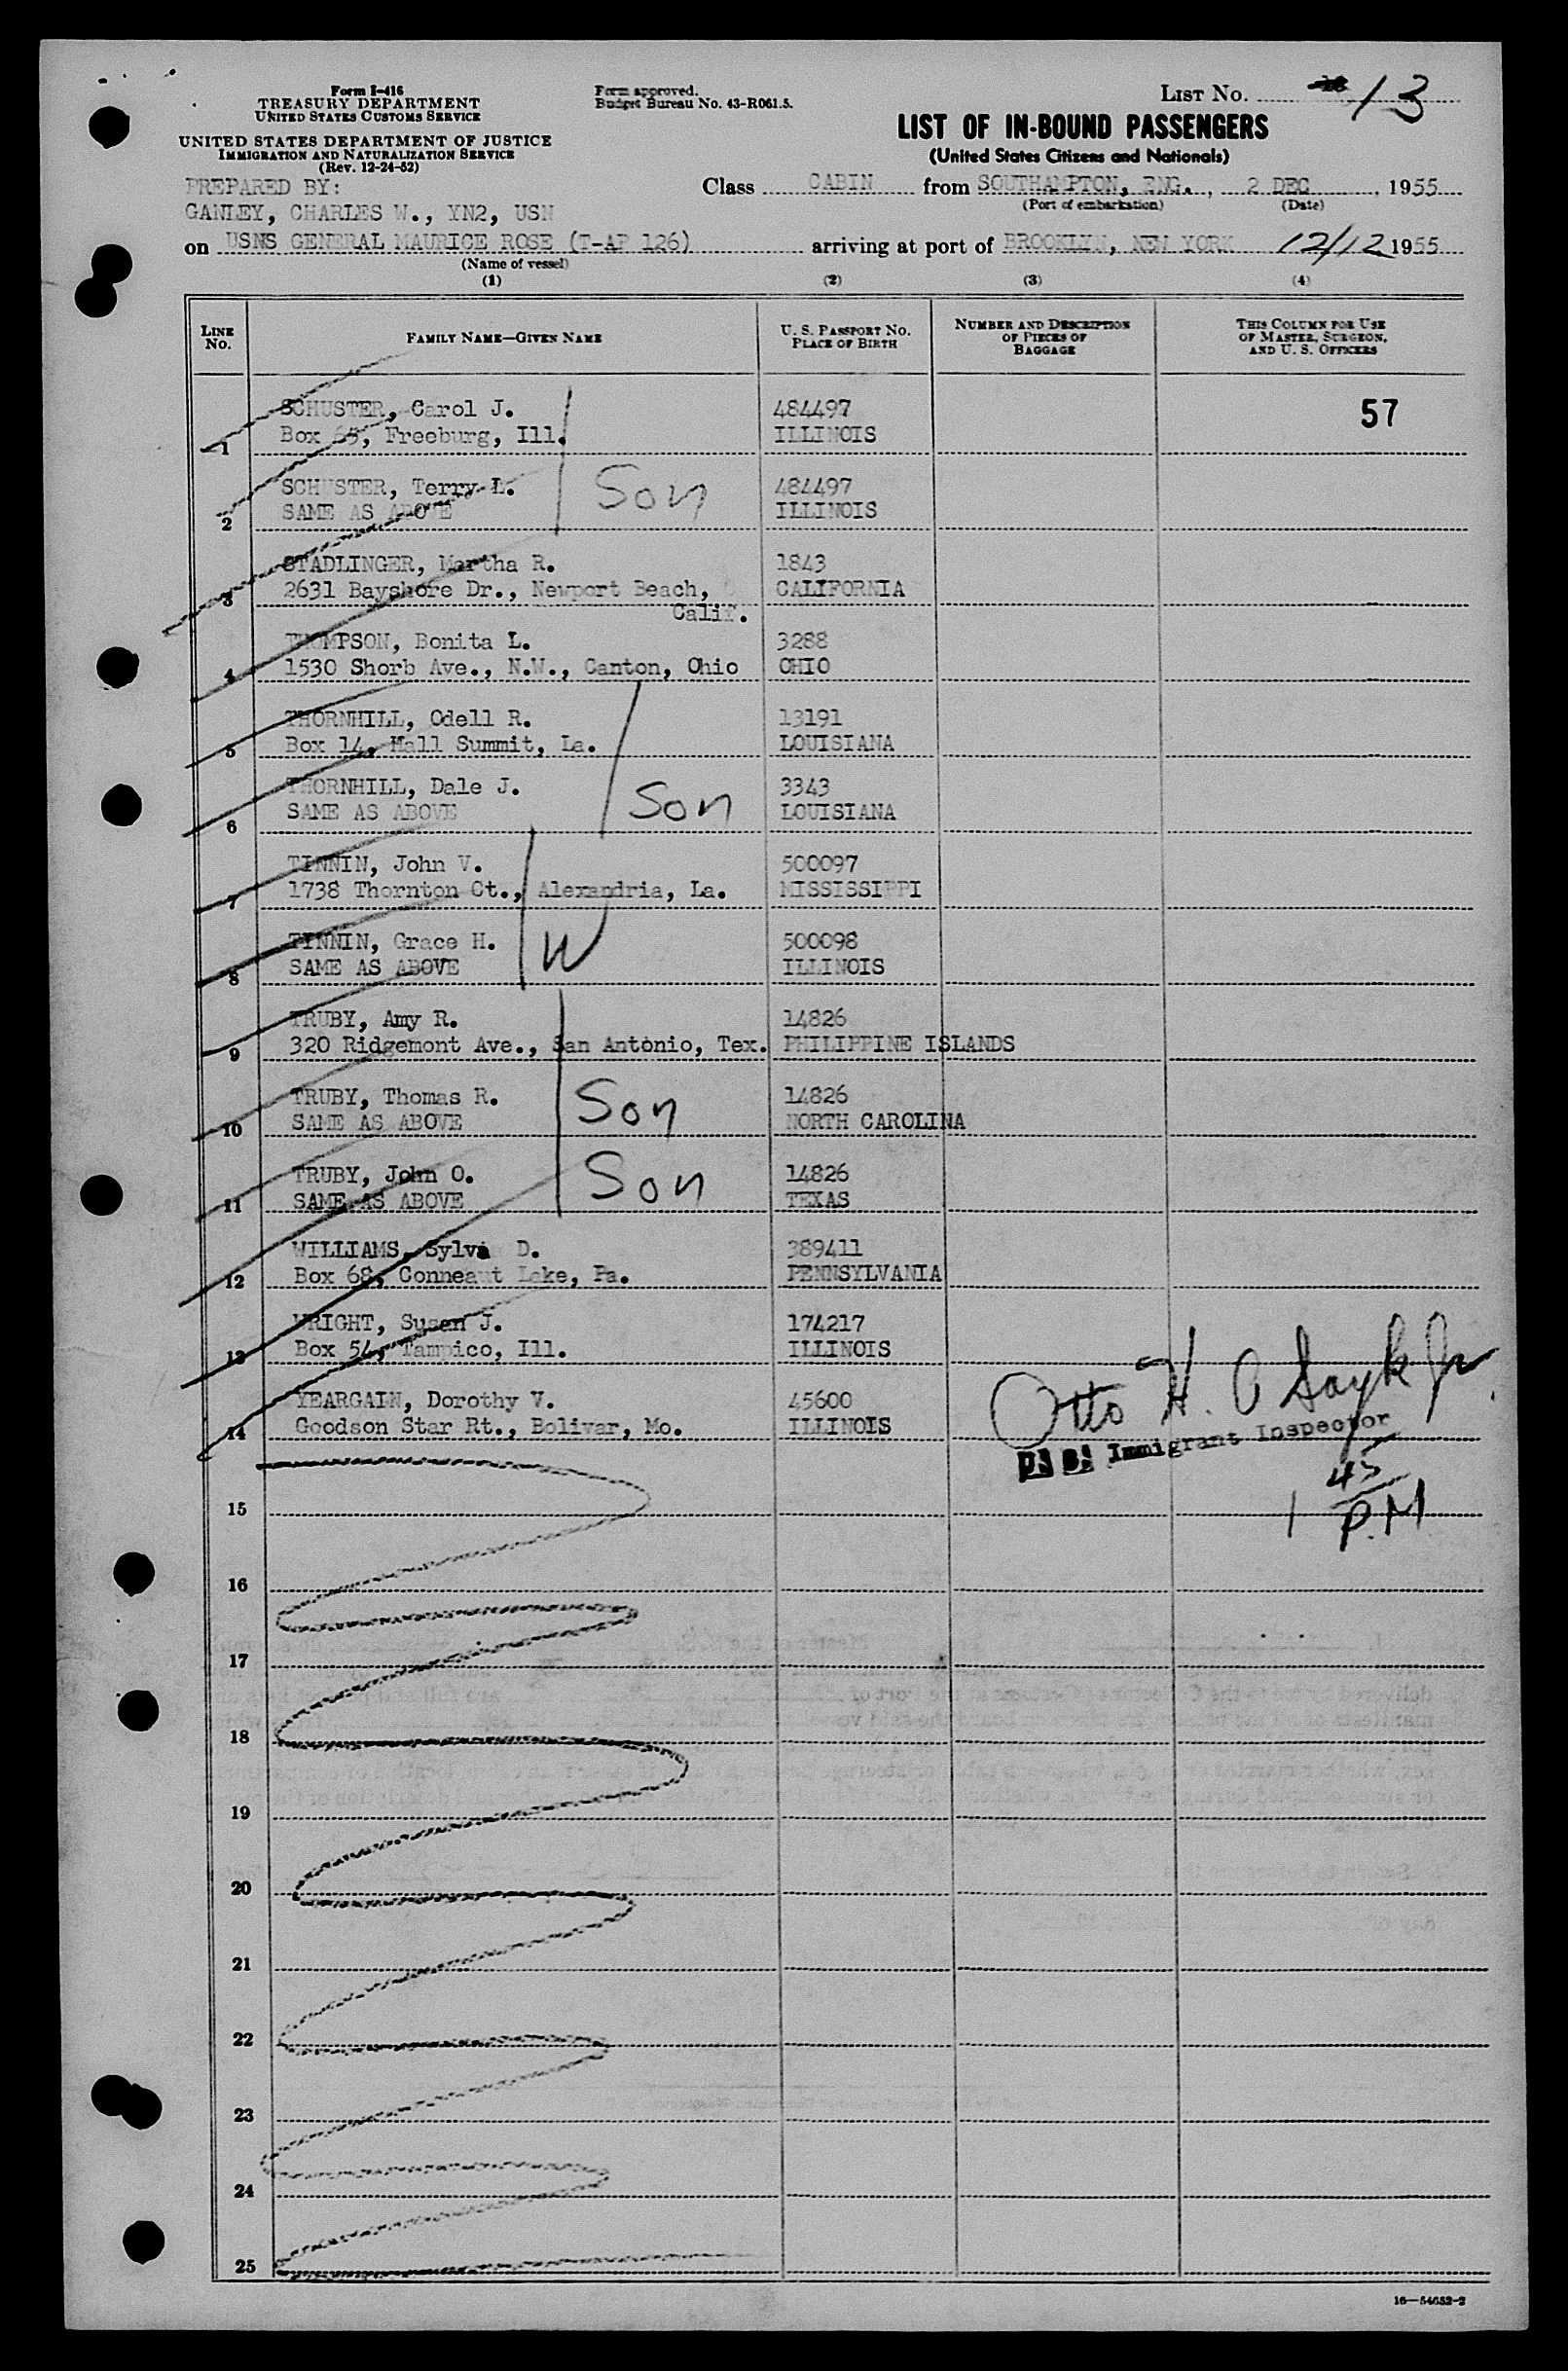 Form I-416
TREASURY DEPARTMENT
UNITED STATES CUSTOMS SERVICE
UNITED STATES DEPARTMENT OF JUSTICE
IMMIGRATION AND NATURALIZATION SERVICE
(Rev. 12-24-52)
Form approved.
Budget Bureau No. 43-R061.5.
LIST No. 13
LIST OF IN-BOUND PASSENGERS
(United States Citizens and Nationals)
PREPARED BY:
GANLEY, CHARLES W., YN2, USN
Class CABIN from SOUTHAMPTON, ENG., 2 DEC, 1955
(Port of embarkation) (Date)
on USNS GENERAL MAURICE ROSE (T-AP 126) arriving at port of BROOKLYN, NEW YORK 12/12 1955
(Name of vessel)
(1) (2) (3) (4)
LINE No. FAMILY NAME—GIVEN NAME U. S. PASSPORT NO. PLACE OF BIRTH NUMBER AND DESCRIPTION OF PIECES OF BAGGAGE THIS COLUMN FOR USE OF MASTER, SURGEON, AND U. S. OFFICERS
SCHUSTER, Carol J. 484497 57
1 Box 65, Freeburg, Ill. ILLINOIS
SCHUSTER, Terry L. Son 484497
2 SAME AS ABOVE ILLINOIS
STADLINGER, Martha R. 1843
3 2631 Bayshore Dr., Newport Beach, CALIFORNIA
Calif.
THOMPSON, Bonita L. 3288
4 1530 Shorb Ave., N.W., Canton, Ohio OHIO
THORNHILL, Odell R. 13191
5 Box 14, Hall Summit, La. LOUISIANA
THORNHILL, Dale J. Son 3343
6 SAME AS ABOVE LOUISIANA
TINNIN, John V. 500097
7 1738 Thornton Ct., Alexandria, La. MISSISSIPPI
TINNIN, Grace H. W 500098
8 SAME AS ABOVE ILLINOIS
TRUBY, Amy R. 14826
9 320 Ridgemont Ave., San Antonio, Tex. PHILIPPINE ISLANDS
TRUBY, Thomas R. Son 14826
10 SAME AS ABOVE NORTH CAROLINA
TRUBY, John O. Son 14826
11 SAME AS ABOVE TEXAS
WILLIAMS, Sylva D. 389411
12 Box 68, Conneaut Lake, Pa. PENNSYLVANIA
WRIGHT, Susan J. 174217
13 Box 54, Tampico, Ill. ILLINOIS
YEARGAIN, Dorothy V. 45600
14 Goodson Star Rt., Bolivar, Mo. ILLINOIS
Otto H. Jr.
U. S. Immigrant Inspector
1 45 P.M
15
16
17
18
19
20
21
22
23
24
25
16—54652-2